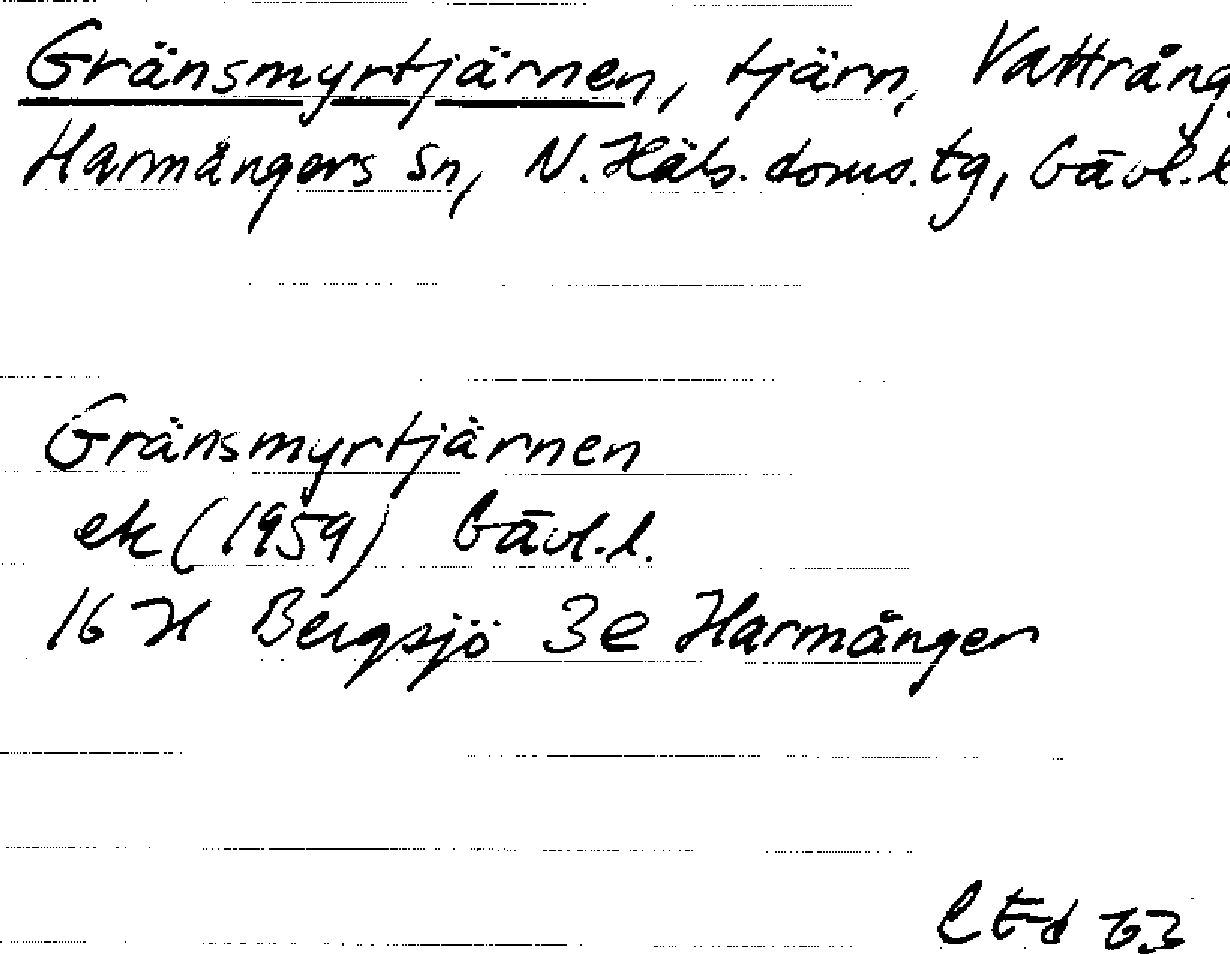 Gränsmyrtjärnen, tjärn, Vattrång,
Harmångers sn, N. Häls. doms. tg, Gävl. l
Gränsmyrtjärnen
ek (1959) Gävl. l.
16 H Bergsjö 3e Harmånger
63